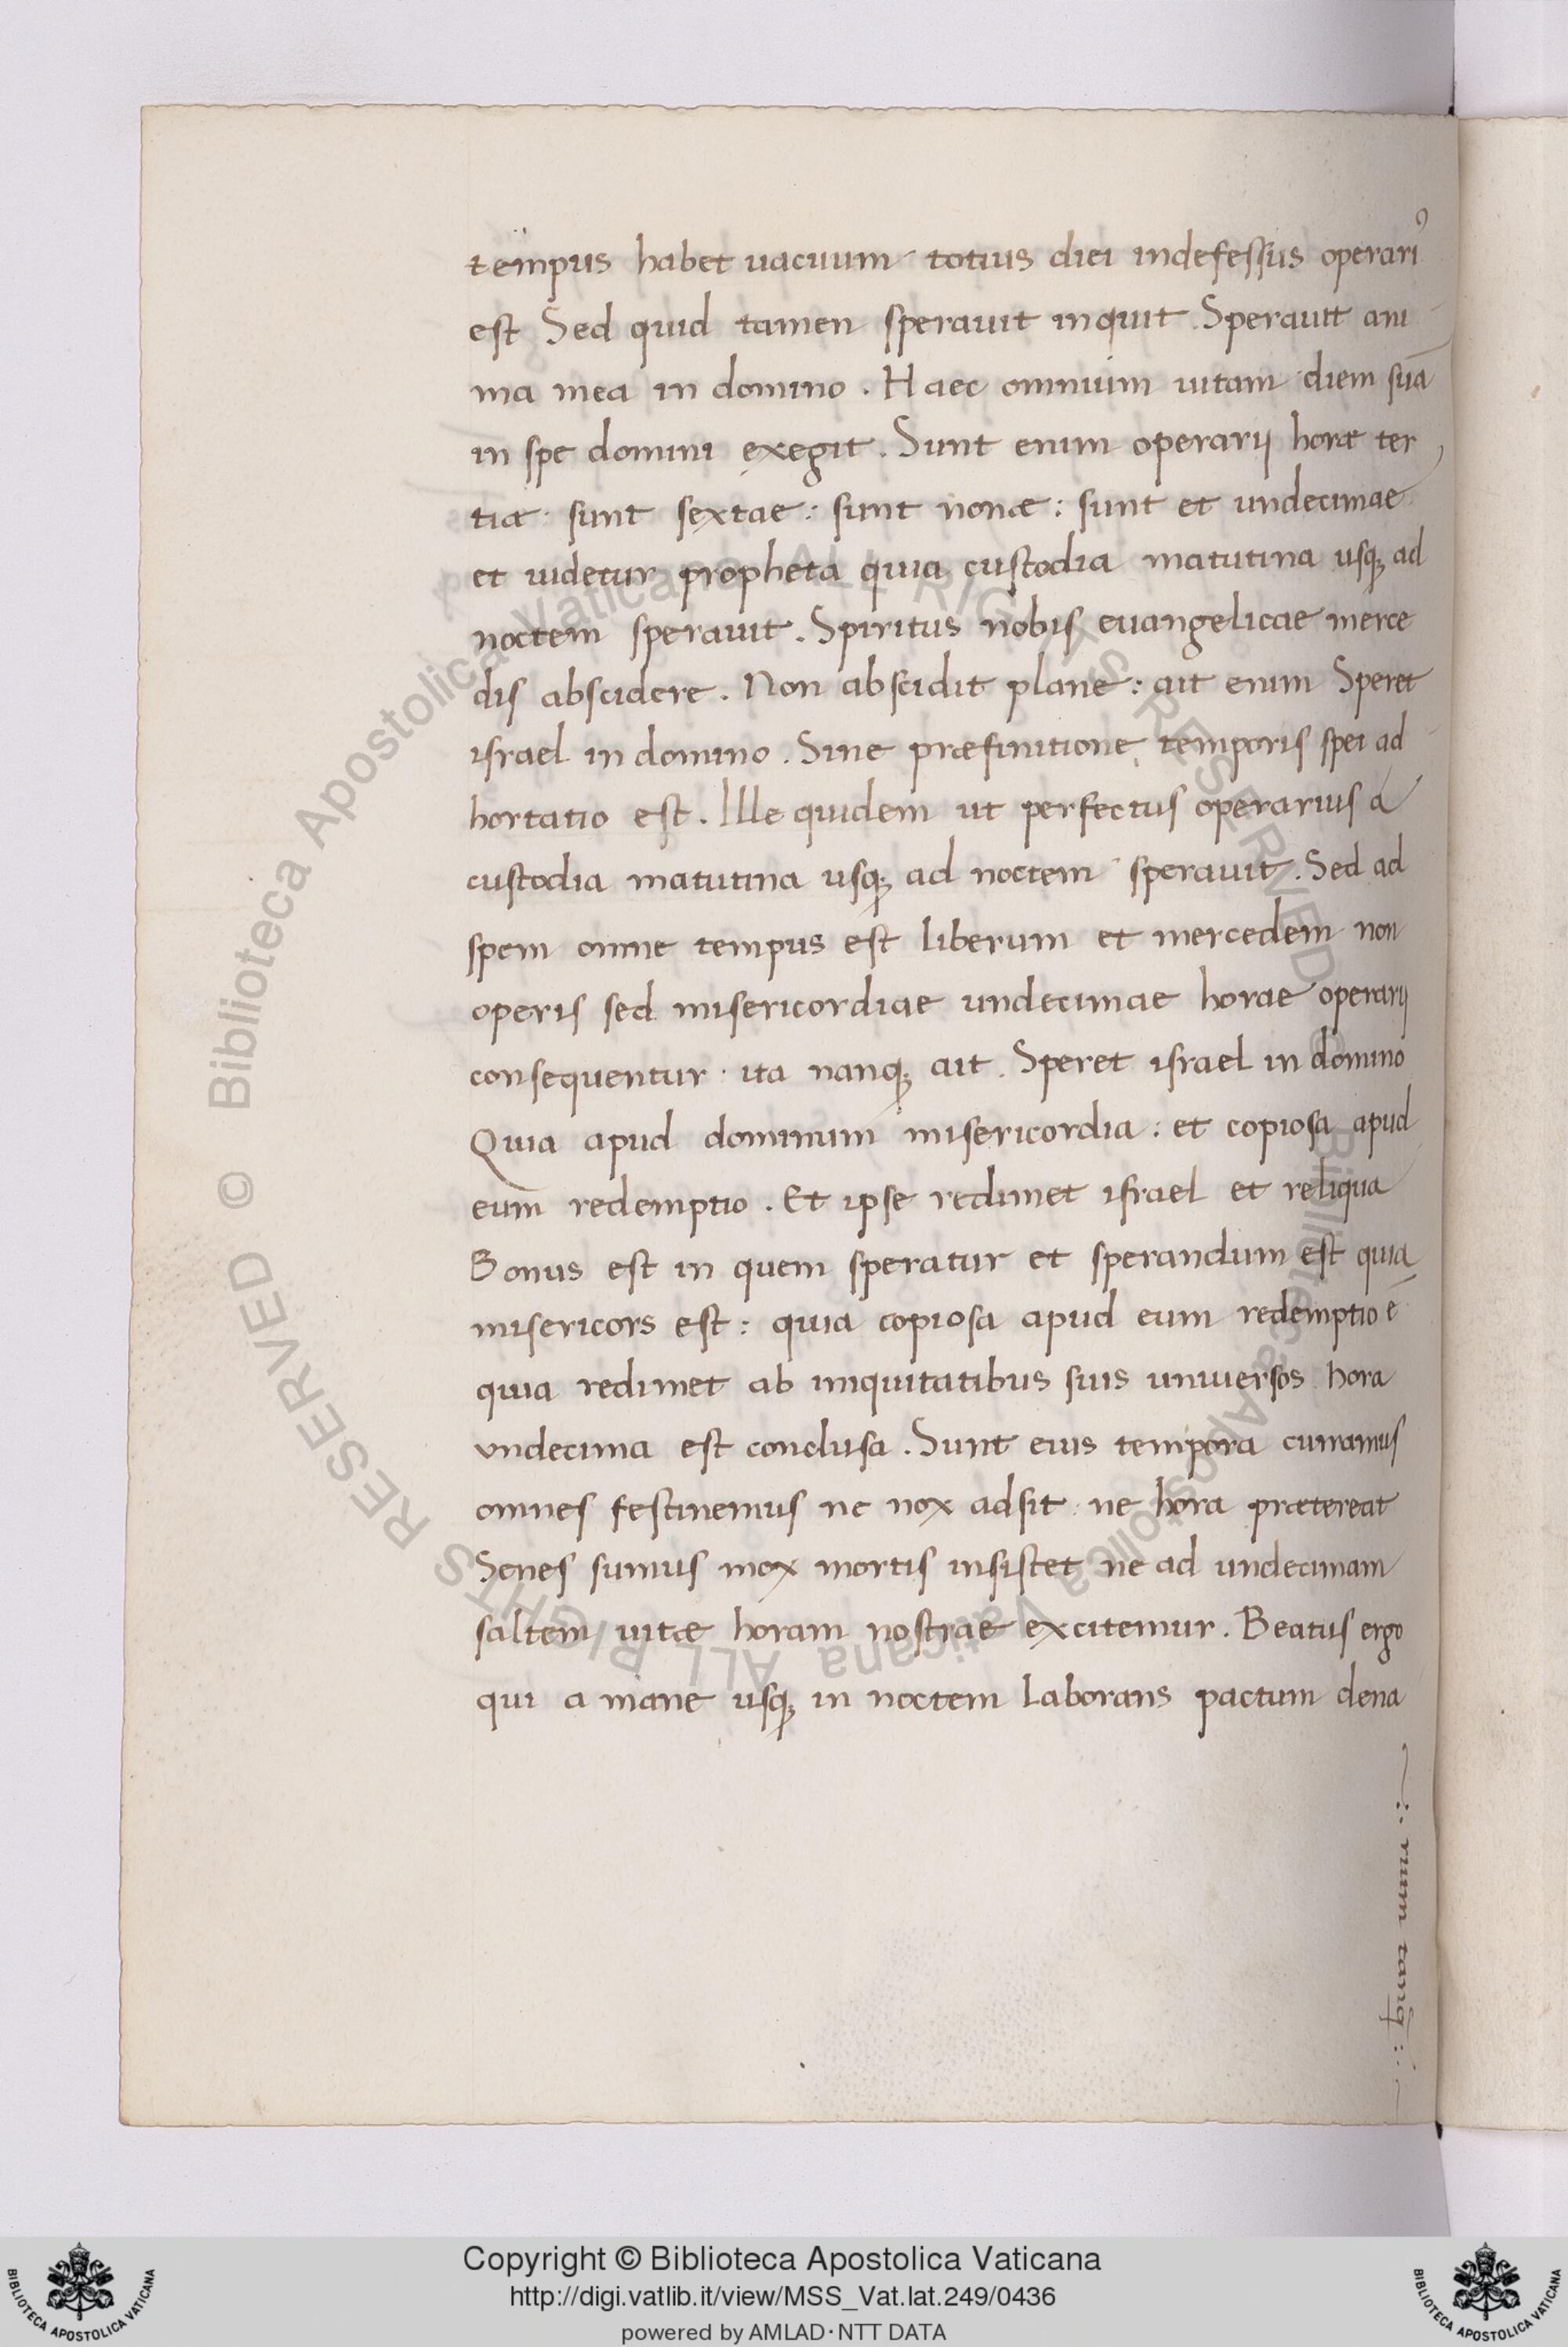 tempus habet uacuum totius diei indefessus operari⁹
est Sed quid tamen sperauit inquit. Sperauit ani
ma mea in domino. Haec omnium uitam diem suā
in spe domini exegit. Sunt enim operarij horæ ter
tiæ: sunt sextae: sunt nonæ: sunt et undecimae
et uidetur propheta quia custodia matutina usq; ad
noctem sperauit. Spiritus nobis euangelicae merce
dis abscidere. Non abscidit plane: ait enim Speret
israel in domino. Sine præfinitione temporis spei ad
hortatio est. Ille quidem ut perfectus operarius a
custodia matutina usq; ad noctem sperauit. Sed ad
spem omne tempus est liberum et mercedem non
operis sed misericordiae undecimae horae operarij
consequentur. ita nanq; ait. Speret israel in domino
Quia apud dominum misericordia: et copiosa apud
eum redemptio. Et ipse redimet israel et reliqua
Bonus est in quem speratur et sperandum est quia
misericors est: quia copiosa apud eum redemptio ē
quia redimet ab iniquitatibus suis uniuersos hora
vndecima est conclusa. Sunt eius tempora curramus
omnes festinemus ne nox adsit ne hora prætereat
Senes sumus mox mortis insistet ne ad undecimam
saltem uitæ horam nostrae excitemur. Beatus ergo
qui a mane usq; in noctem laborans pactum dena
Copyright © Biblioteca Apostolica Vaticana
http://digi.vatlib.it/view/MSS_Vat.lat.249/0436
powered by AMLAD·NTT DATA
BIBLIOTECA APOSTOLICA VATICANA
BIBLIOTECA APOSTOLICA VATICANA